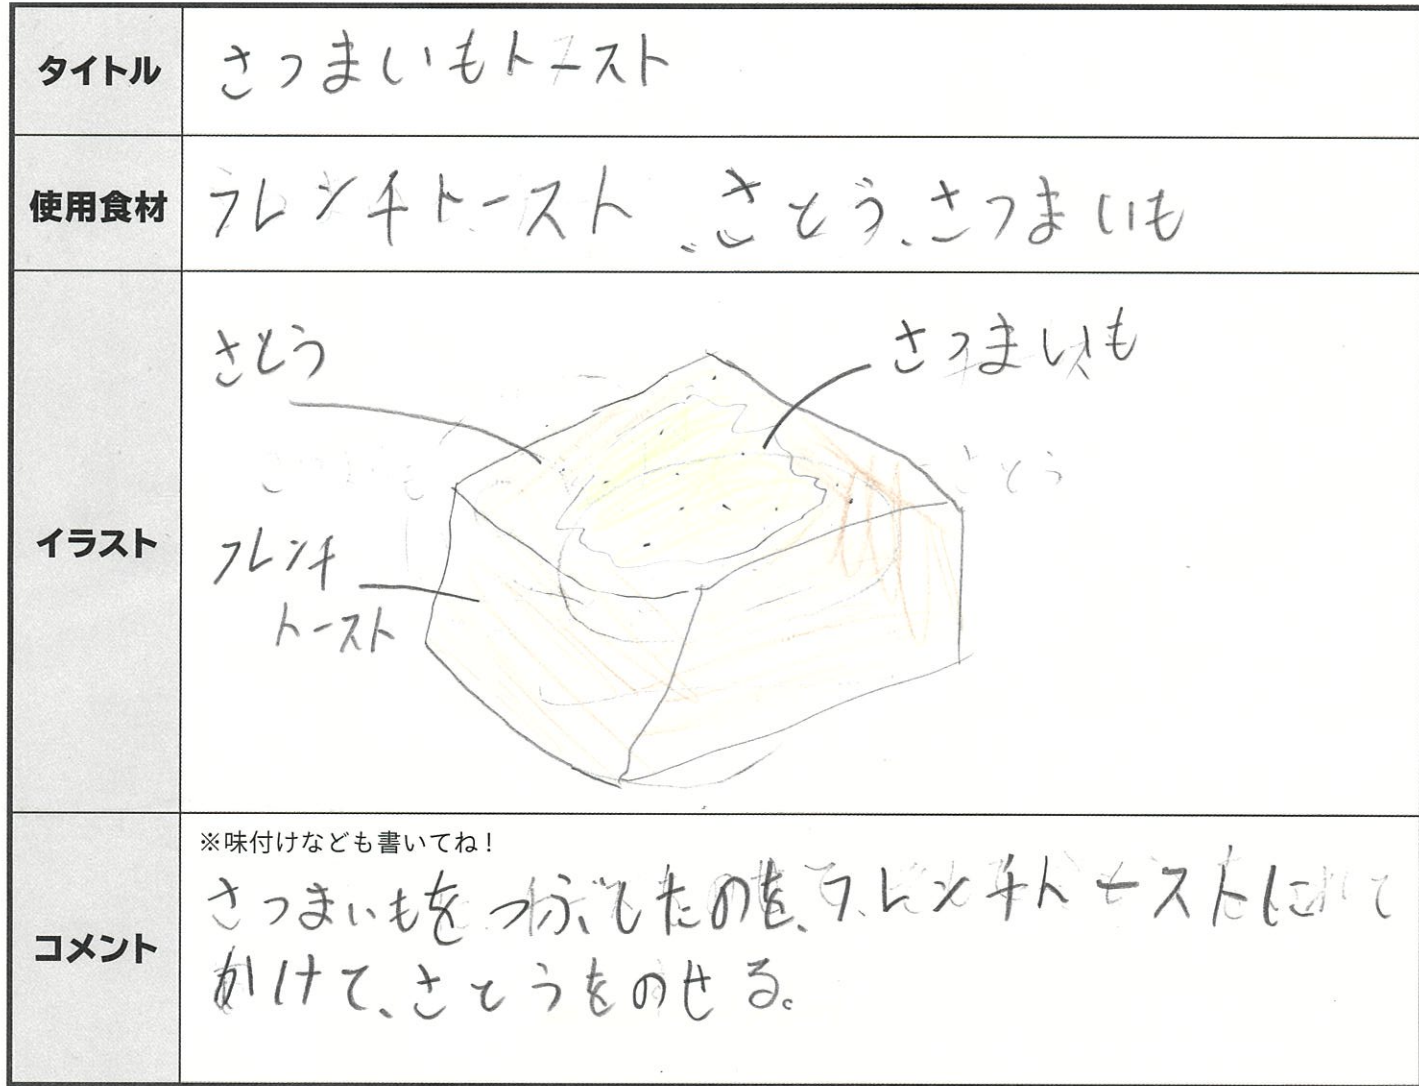 タイトル
さつまいもトースト
使用食材
フレンチトースト、さとう、さつまいも
イラスト
さとう
さつまいも
フレンチ
トースト
コメント
※味付けなども書いてね！
さつまいもをつぶしたのを、フレンチトーストに
かけて、さとうをのせる。